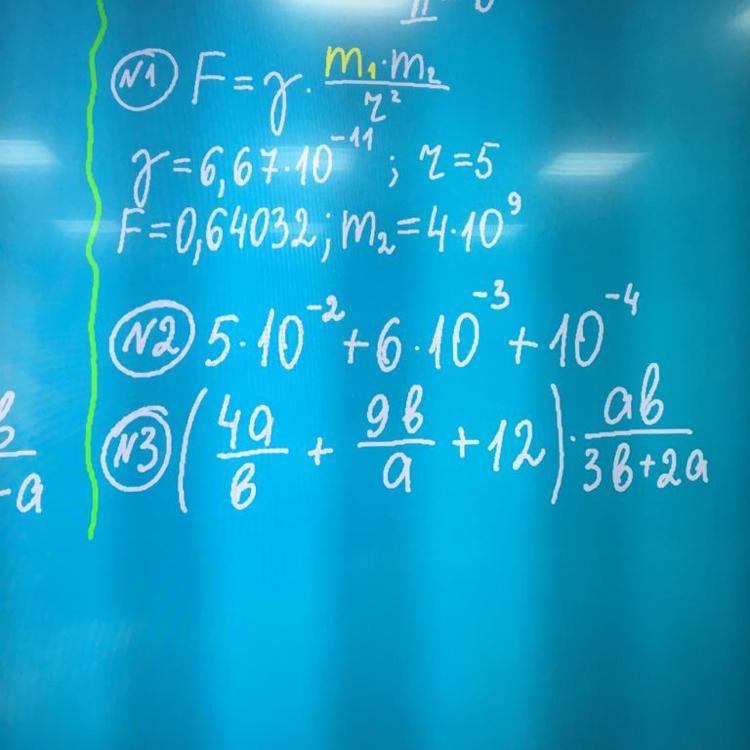 №1 F = γ · m₁·m₂ / r²
γ = 6,67·10⁻¹¹ ; r = 5
F = 0,64032; m₂ = 4·10⁹
№2 5·10⁻² + 6·10⁻³ + 10⁻⁴
№3 (4a/b + 9b/a + 12) · ab / 3b+2a